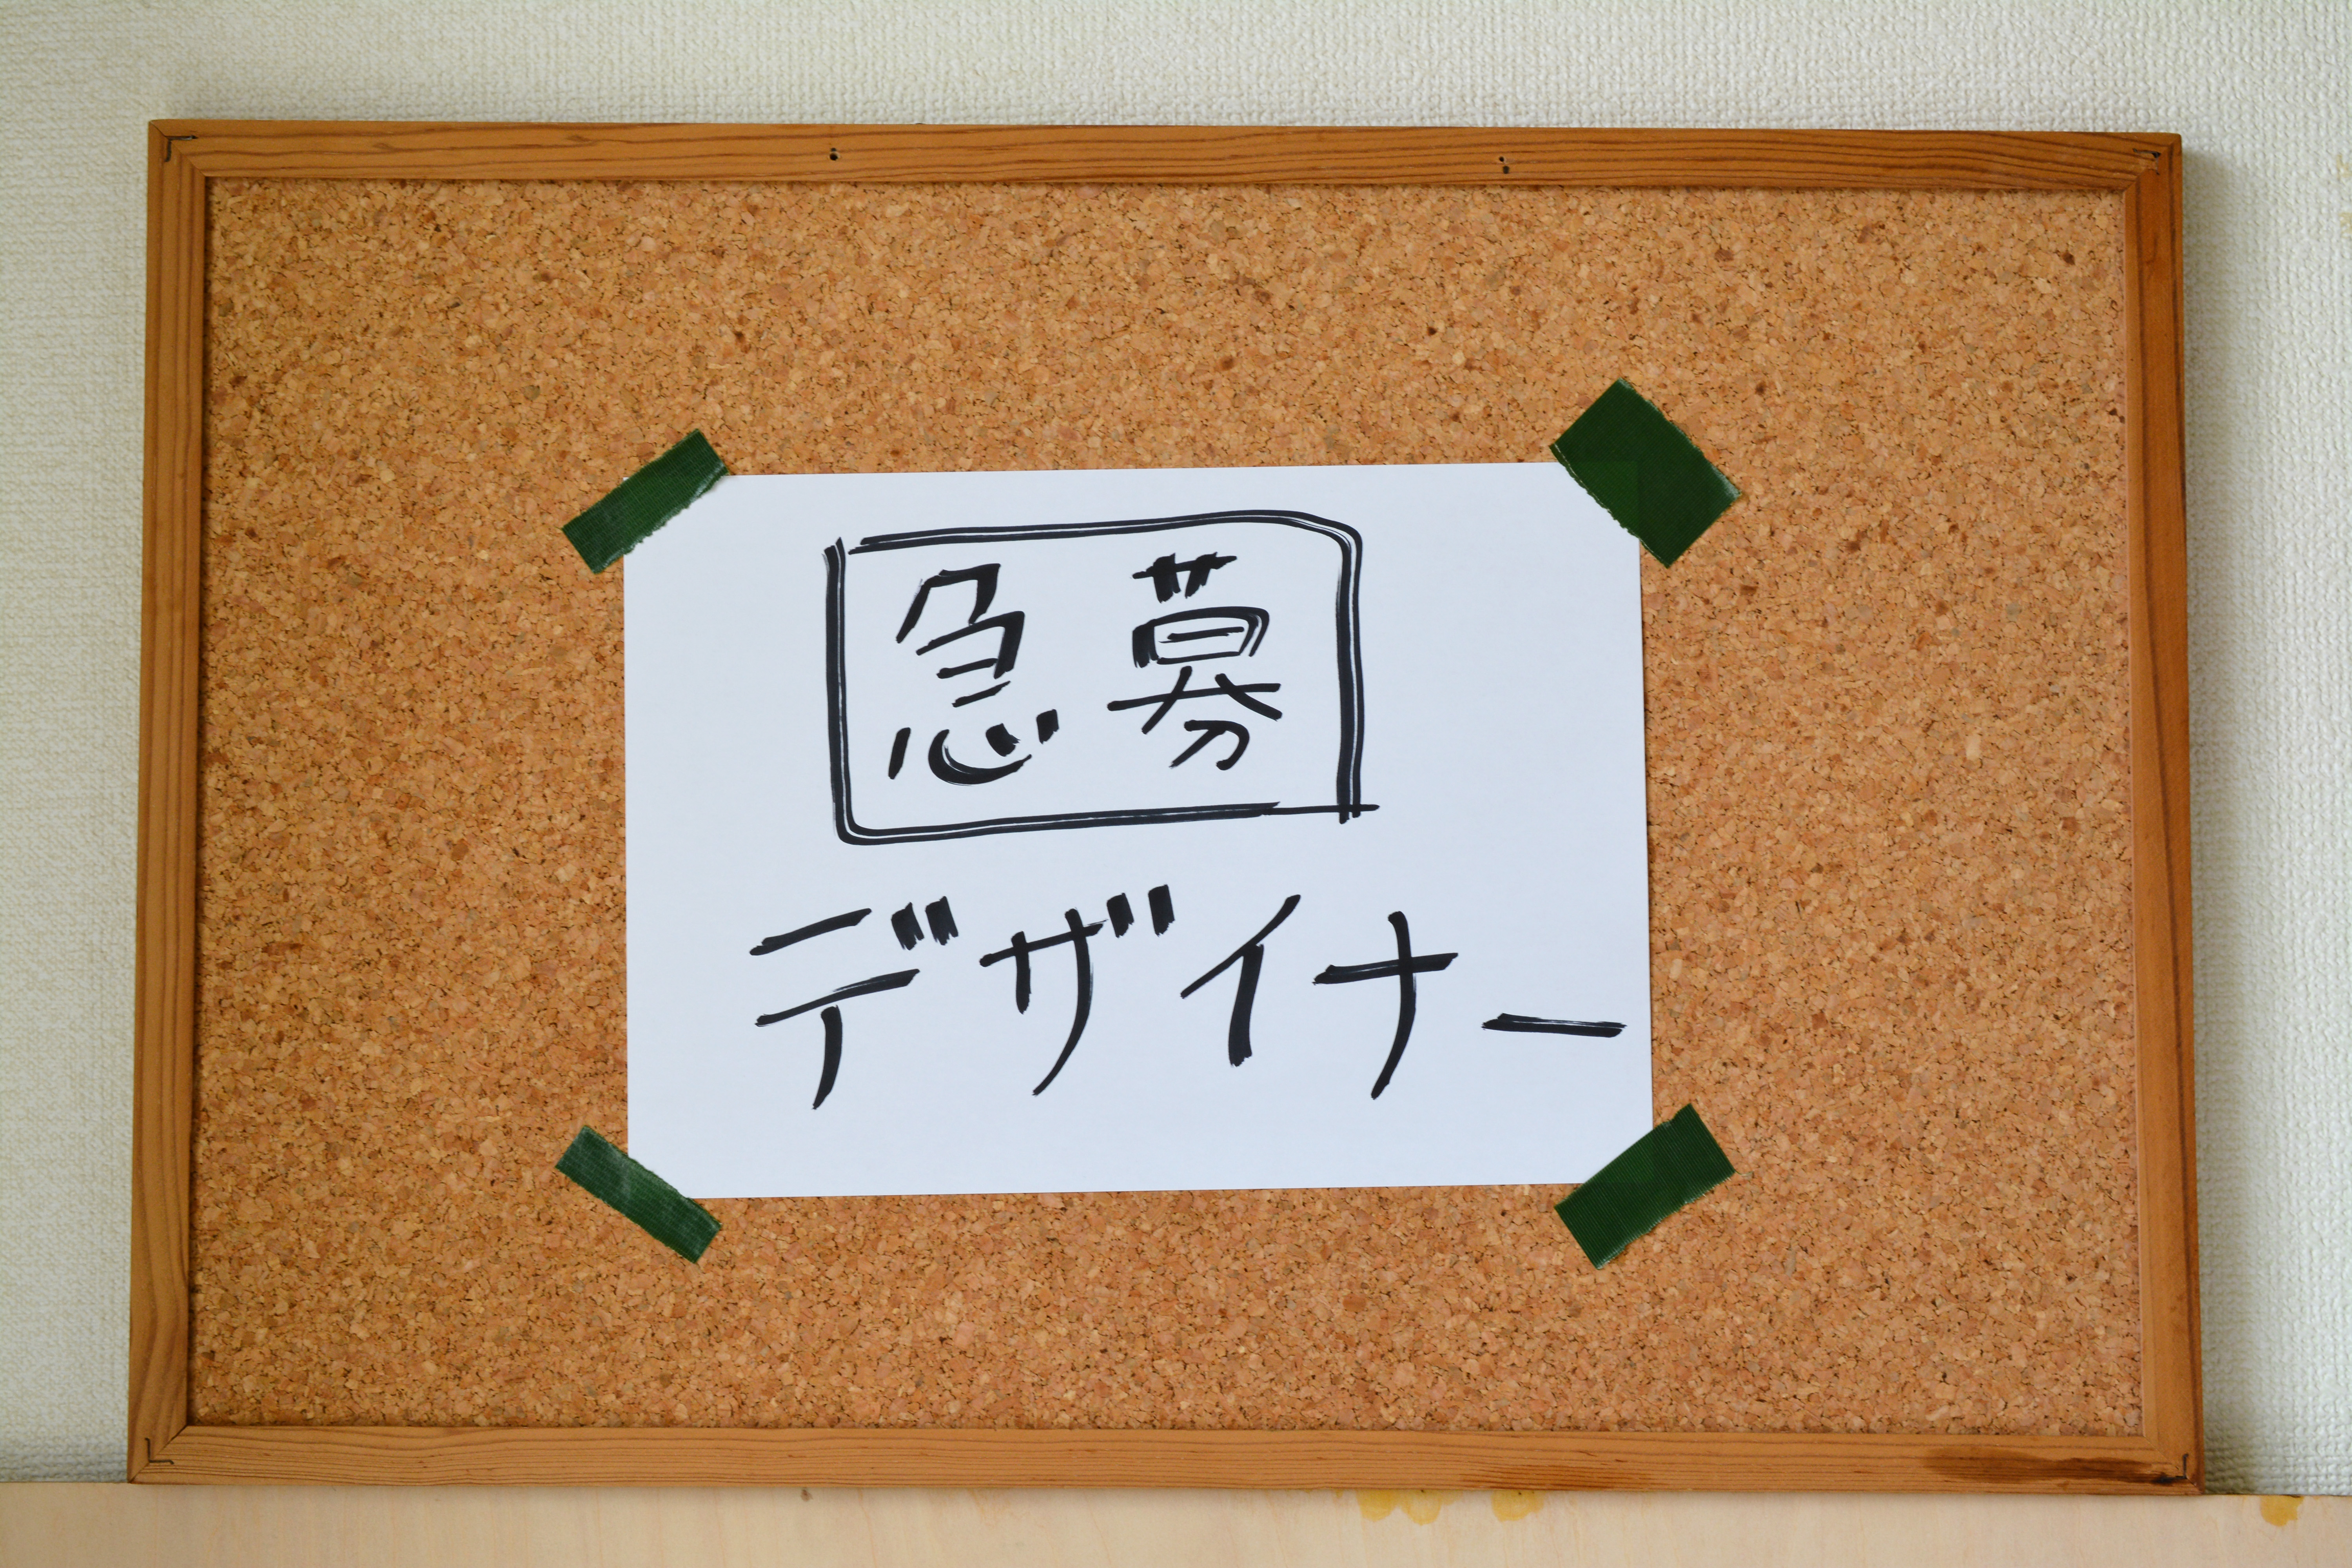 急募
デザイナー